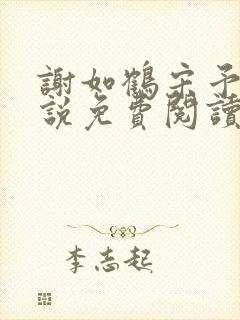 謝如鶴宋予
說免費閱讀
李志起